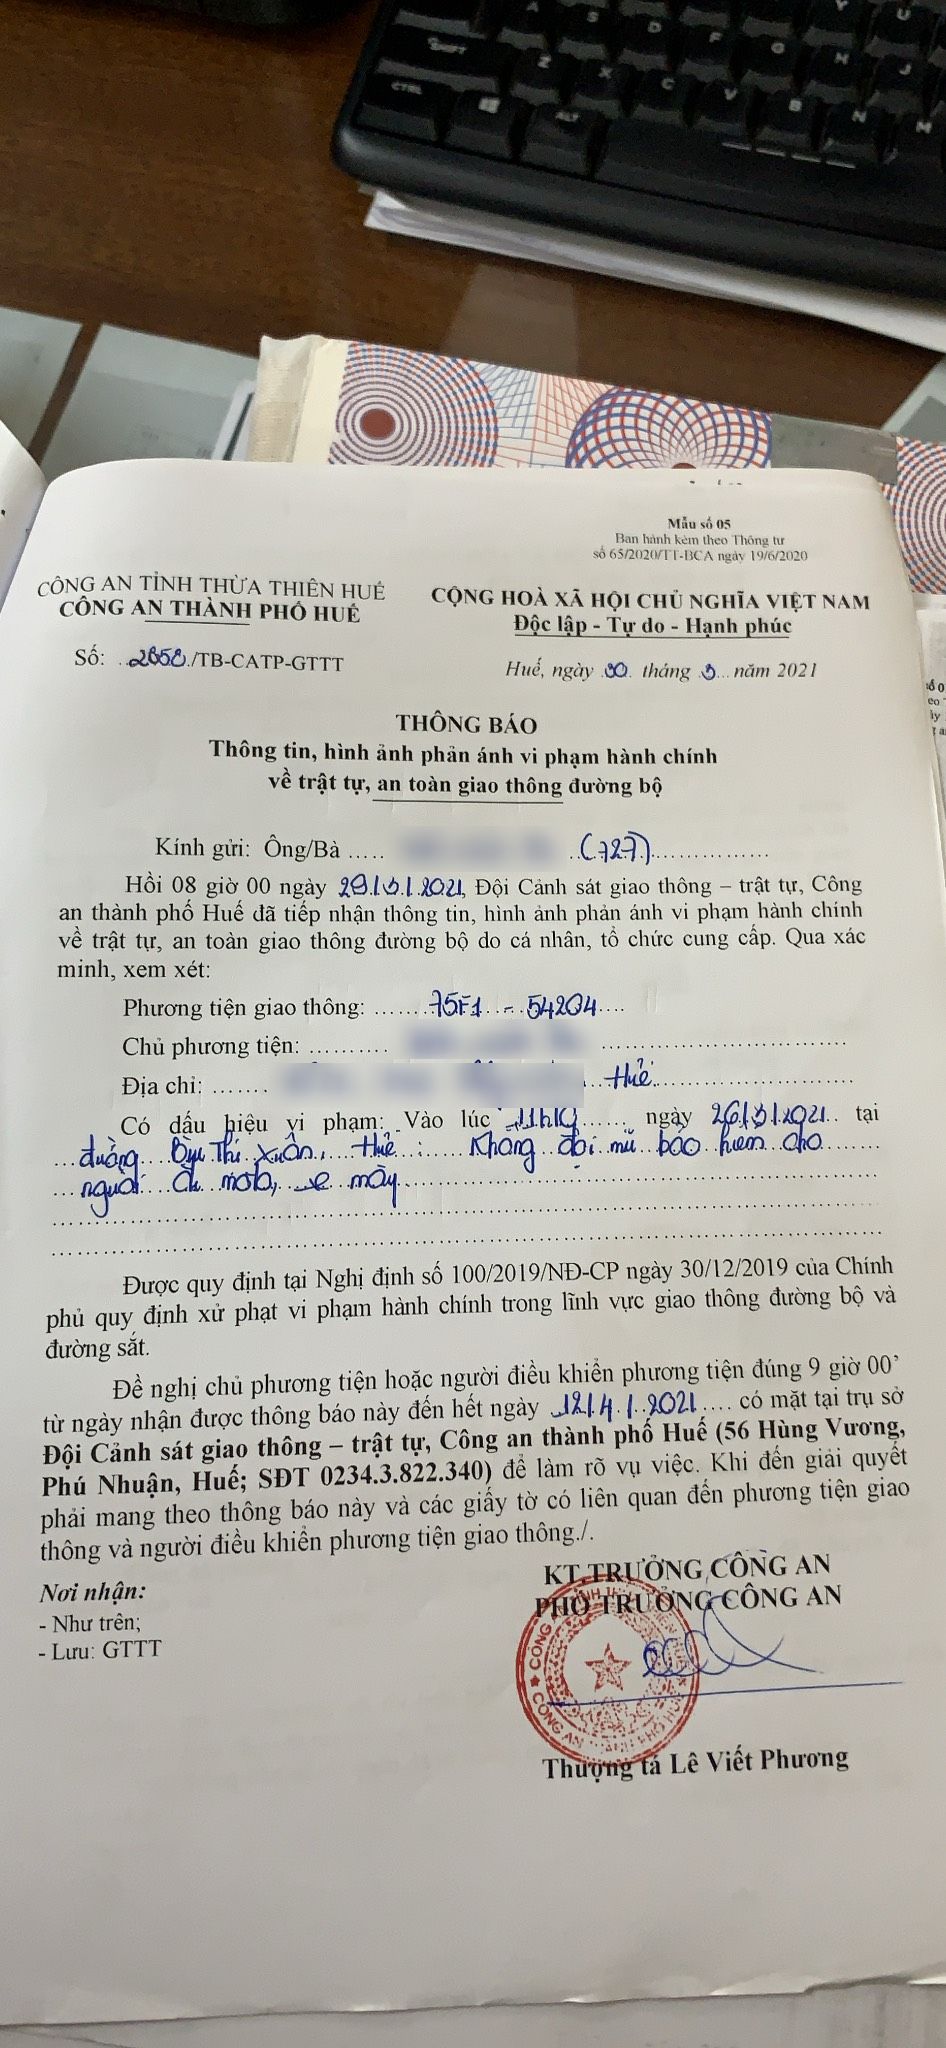 Mẫu số 05
Ban hành kèm theo Thông tư
số 65/2020/TT-BCA ngày 19/6/2020
CÔNG AN TỈNH THỪA THIÊN HUẾ
CÔNG AN THÀNH PHỐ HUẾ
Số: 2858/TB-CATP-GTTT
CỘNG HOÀ XÃ HỘI CHỦ NGHĨA VIỆT NAM
Độc lập - Tự do - Hạnh phúc
Huế, ngày 30 tháng 3 năm 2021
THÔNG BÁO
Thông tin, hình ảnh phản ánh vi phạm hành chính
về trật tự, an toàn giao thông đường bộ
Kính gửi: Ông/Bà ..... (727)
Hồi 08 giờ 00 ngày 29/3/2021, Đội Cảnh sát giao thông – trật tự, Công
an thành phố Huế đã tiếp nhận thông tin, hình ảnh phản ánh vi phạm hành chính
về trật tự, an toàn giao thông đường bộ do cá nhân, tổ chức cung cấp. Qua xác
minh, xem xét:
Phương tiện giao thông: 75F1 - 54204
Chủ phương tiện:
Địa chỉ: Huế
Có dấu hiệu vi phạm: Vào lúc 11h19 ngày 26/3/2021 tại
đường Bùi Thị Xuân, Huế: Không đội mũ bảo hiểm cho
người đi mô tô, xe máy
Được quy định tại Nghị định số 100/2019/NĐ-CP ngày 30/12/2019 của Chính
phủ quy định xử phạt vi phạm hành chính trong lĩnh vực giao thông đường bộ và
đường sắt.
Đề nghị chủ phương tiện hoặc người điều khiển phương tiện đúng 9 giờ 00’
từ ngày nhận được thông báo này đến hết ngày 12/4/2021 có mặt tại trụ sở
Đội Cảnh sát giao thông – trật tự, Công an thành phố Huế (56 Hùng Vương,
Phú Nhuận, Huế; SĐT 0234.3.822.340) để làm rõ vụ việc. Khi đến giải quyết
phải mang theo thông báo này và các giấy tờ có liên quan đến phương tiện giao
thông và người điều khiển phương tiện giao thông./.
Nơi nhận:
- Như trên;
- Lưu: GTTT
KT.TRƯỞNG CÔNG AN
PHÓ TRƯỞNG CÔNG AN
Thượng tá Lê Viết Phương